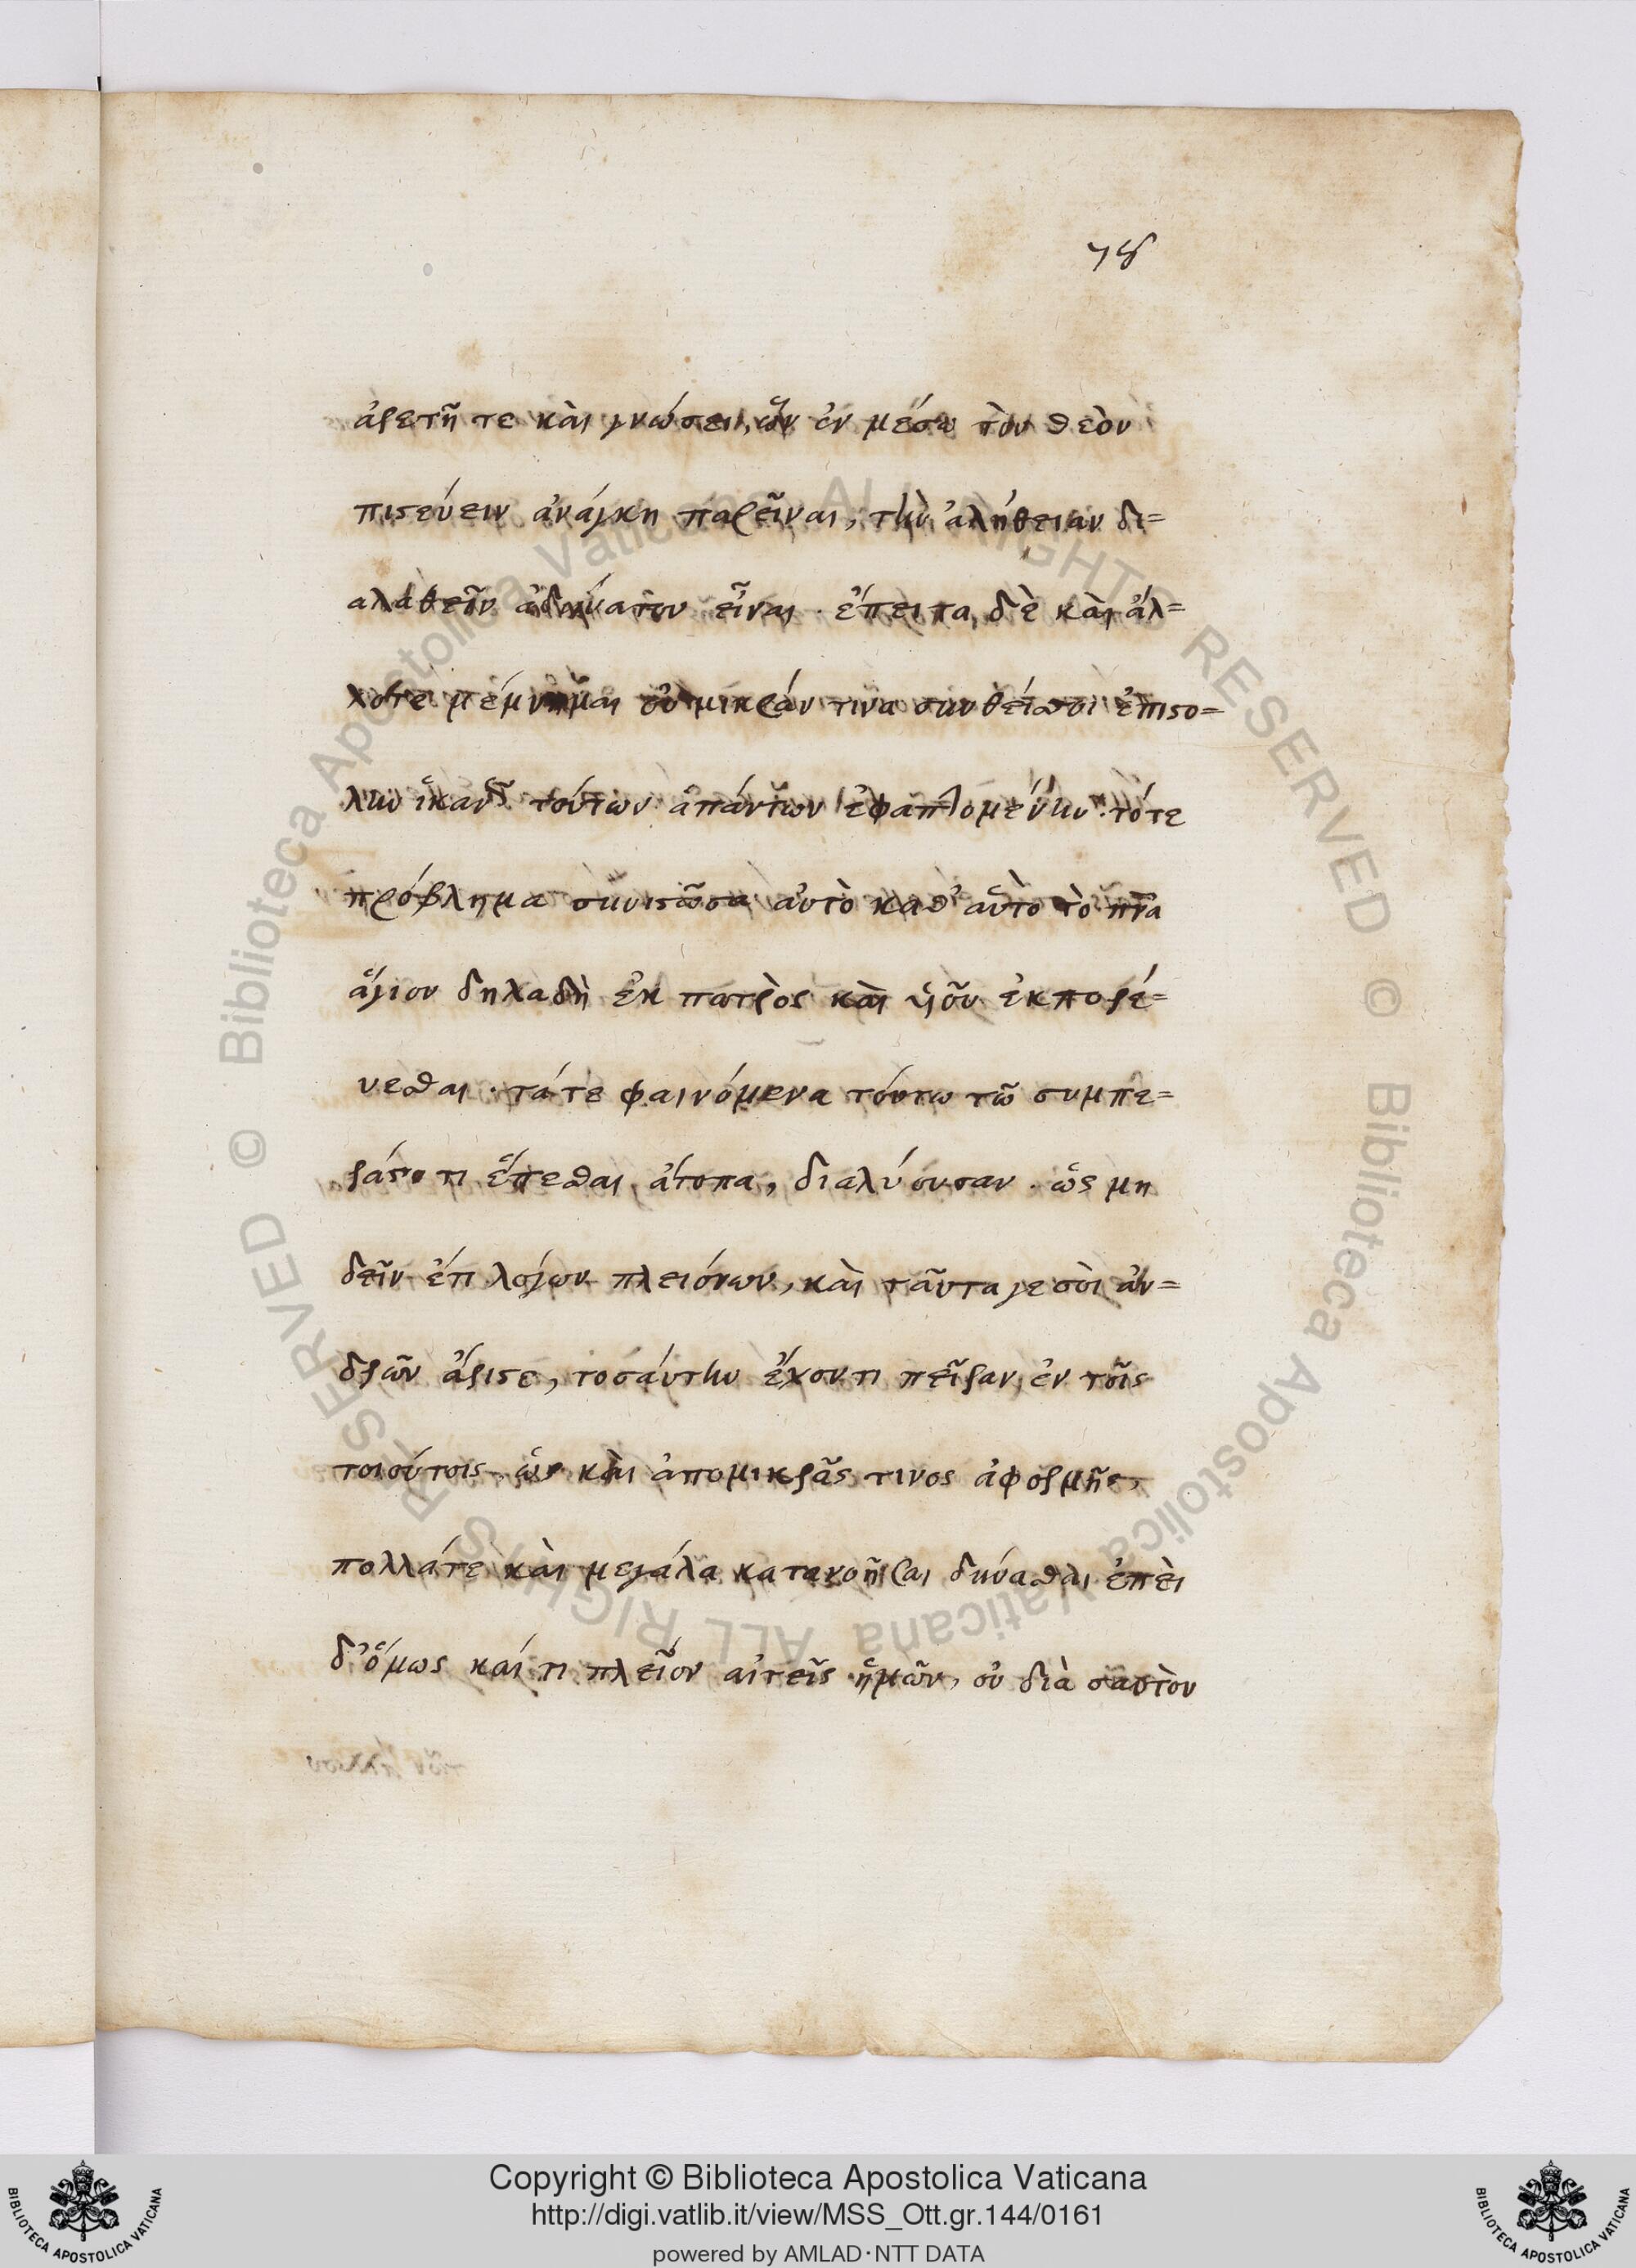 78
ἀρετῆ τε καὶ γνώσει, ὧν ἐν μέσω τὸν θεὸν
πιστεύειν ἀνάγκη παρεῖναι, τὴν ἀλήθειαν δι=
αλαθεῖν ἀδύνατον εἶναι. ἔπειτα δὲ καὶ ἄλ=
λοτε μέμνημαι οὐ μικράν τινα συνθείς σοι ἐπιστο=
λὴν ἱκανῶς τούτων ἁπάντων ἐφαπτομένην. τό τε
πρόβλημα συνιστῶσαν αὐτὸ καθ' αὑτὸ τὸ πνα
ἅγιον δηλαδὴ ἐκ πατρὸς καὶ υἱοῦ ἐκπορέ=
υεσθαι. τά τε φαινόμενα τούτω τῶ συμπε=
ράσματι ἕπεσθαι ἄτοπα, διαλύουσαν. ὡς μη
δεῖν ἔτι λόγων πλειόνων, καὶ ταῦτα γε σοὶ ἀν=
δρῶν ἄριστε, τοσάυτην ἔχοντι πεῖραν ἐν τοῖς
τοιούτοις, ὡς καὶ ἀπομικρᾶς τινος ἀφορμῆς,
πολλάτε καὶ μεγάλα κατανοῆσαι δύνασθαι. ἐπεὶ
δ' ὅμως καί τι πλεῖον αἰτεῖς ἡμῶν, οὐ διὰ σαυτὸν
Copyright © Biblioteca Apostolica Vaticana
http://digi.vatlib.it/view/MSS_Ott.gr.144/0161
powered by AMLAD·NTT DATA
BIBLIOTECA APOSTOLICA VATICANA
BIBLIOTECA APOSTOLICA VATICANA
© Biblioteca Apostolica Vaticana ALL RIGHTS RESERVED © Biblioteca Apostolica Vaticana ALL RIGHTS RESERVED